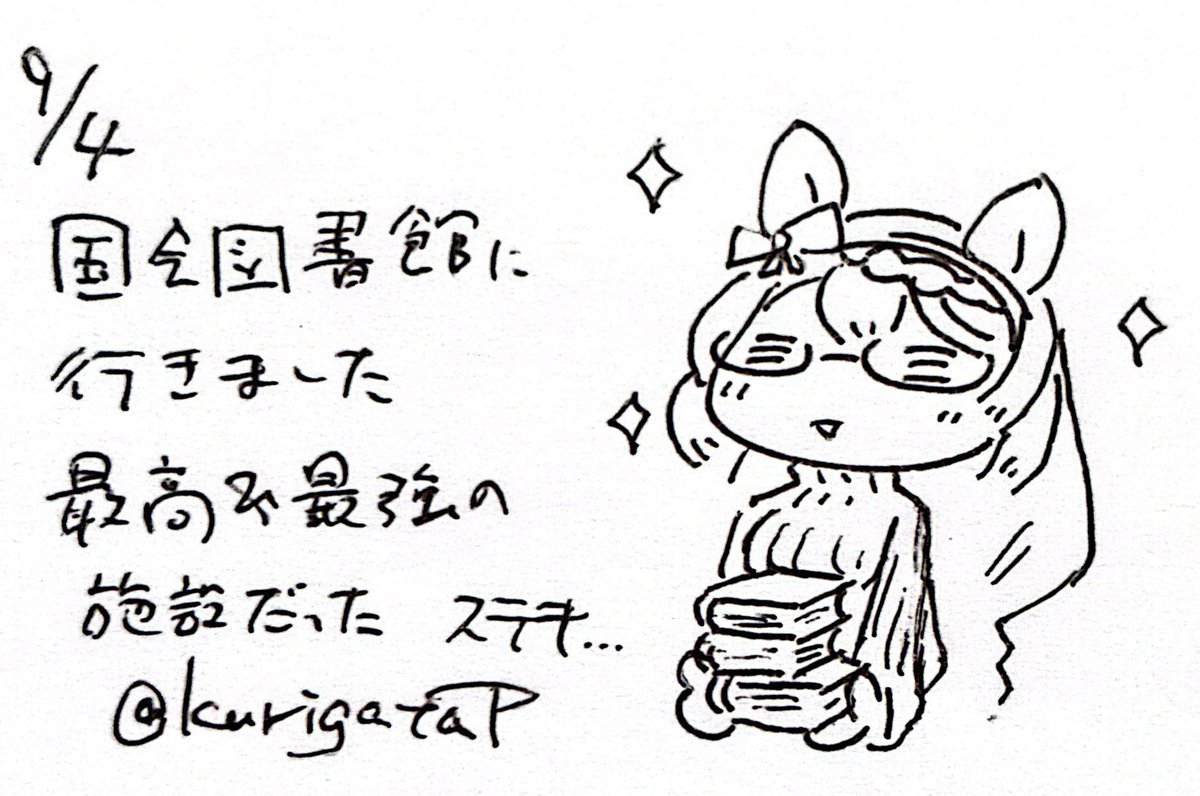 9/4
国会図書館に
行きました
最高で最強の
施設だった ステキ…
@kurigataP